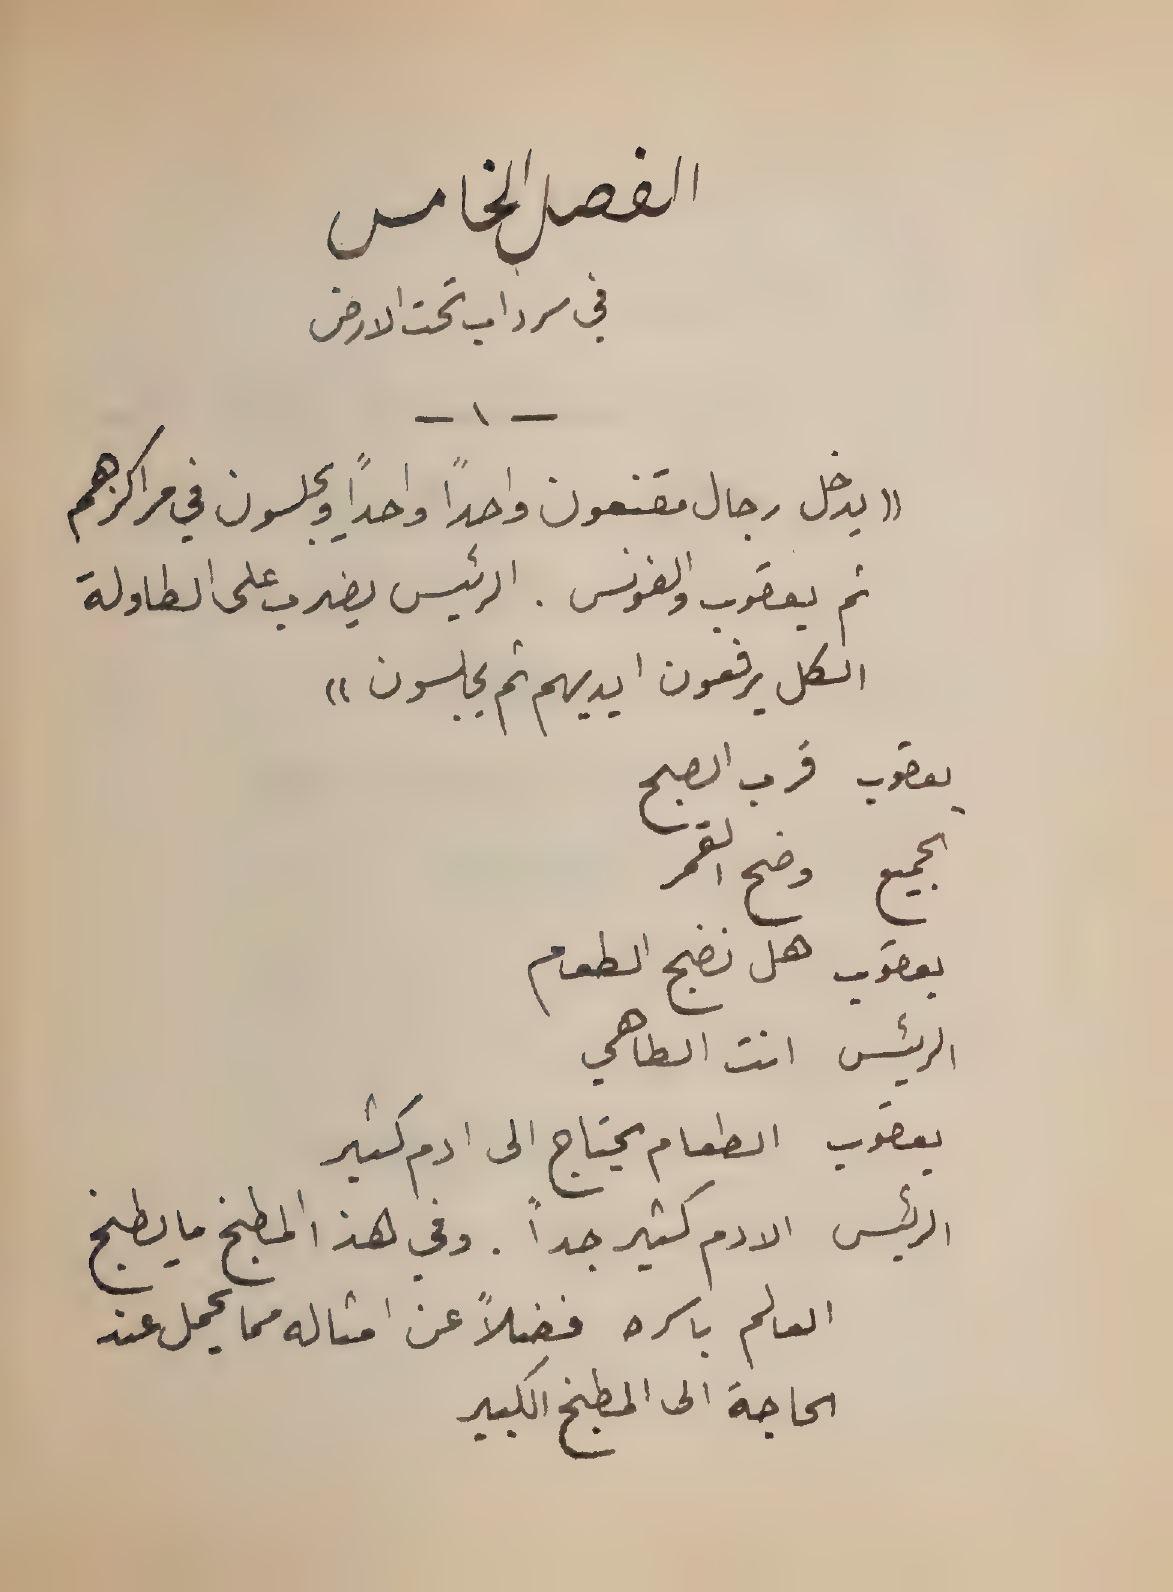 الفصل الخامس
في سرداب تحت الارض
— ١ —
« يدخل رجال مقنعون واحداً واحداً ويجلسون في مراكزهم
ثم يعقوب والفونس . الرئيس يضرب على الطاولة
الكل يرفعون ايديهم ثم يجلسون »
يعقوب قرب الصبح
الجميع وضح القمر
يعقوب هل نضج الطعام
الرئيس انت الطاهي
يعقوب الطعام يحتاج الى ادم كثير
الرئيس الادم كثير جداً . وفي هذا المطبخ ما يطبخ
العالم باسره فضلاً عن امثاله مما يحمل عند
الحاجة الى المطبخ الكبير